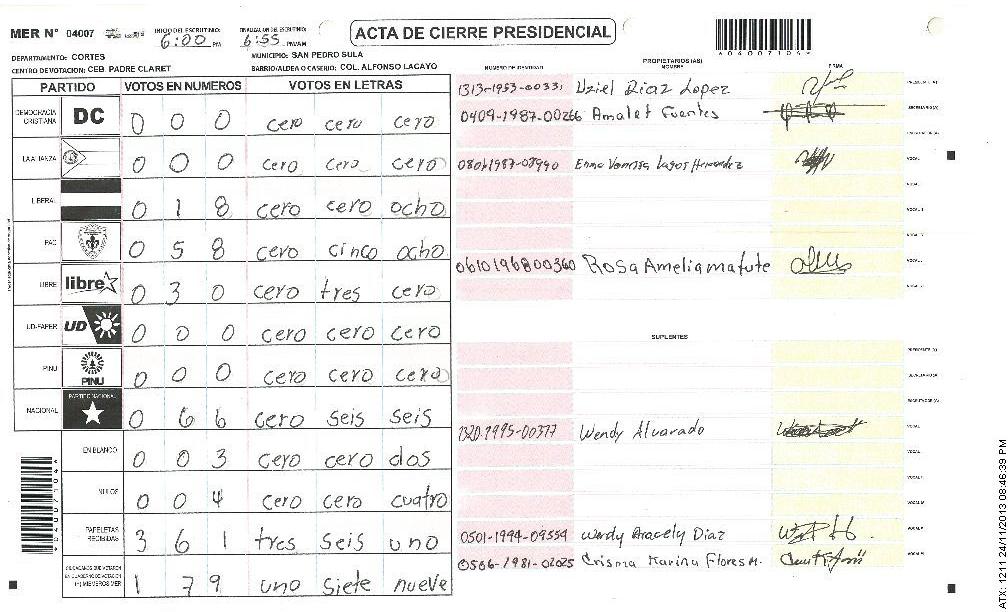 MER N° 04007
INICIO DEL ESCRUTINIO: 6:00 PM
FINALIZACION DEL ESCRUTINIO: 6:55 PM/AM
ACTA DE CIERRE PRESIDENCIAL
DEPARTAMENTO: CORTES
MUNICIPIO: SAN PEDRO SULA
CENTRO DE VOTACION: CEB. PADRE CLARET
BARRIO/ALDEA O CASERIO: COL. ALFONSO LACAYO
PARTIDO VOTOS EN NUMEROS VOTOS EN LETRAS
DEMOCRACIA CRISTIANA DC 0 0 0 cero cero cero
LA ALIANZA 0 0 0 cero cero cero
LIBERAL 0 1 8 cero cero ocho
PAC 0 5 8 cero cinco ocho
LIBRE libre 0 3 0 cero tres cero
UD-FAPER UD 0 0 0 cero cero cero
PINU PINU 0 0 0 cero cero cero
NACIONAL PARTIDO NACIONAL 0 6 6 cero seis seis
EN BLANCO 0 0 3 cero cero dos
NULOS 0 0 4 cero cero cuatro
PAPELETAS RECIBIDAS 3 6 1 tres seis uno
CIUDADANOS QUE VOTARON EN CUADERNO DE VOTACION (+) MIEMBROS MER 1 7 9 uno siete nueve
PROPIETARIOS (AS)
NUMERO DE IDENTIDAD NOMBRE FIRMA
1313-1953-00331 Uziel Diaz Lopez PRESIDENTE (A)
0409-1987-00266 Amalet Fuentes SECRETARIO (A)
ESCRUTADOR (A)
0801-1987-08990 Enma Vanessa Lagos Hernandez VOCAL
0610196800360 Rosa Amelia matute
SUPLENTES
PRESIDENTE (A)
SECRETARIO (A)
ESCRUTADOR (A)
1320-1995-00377 Wendy Alvarado VOCAL
0501-1994-09554 Wendy Aracely Diaz
0506-1981-02025 Crisma Karina Flores M.
ATX: 1211 24/11/2013 08:46:39 PM